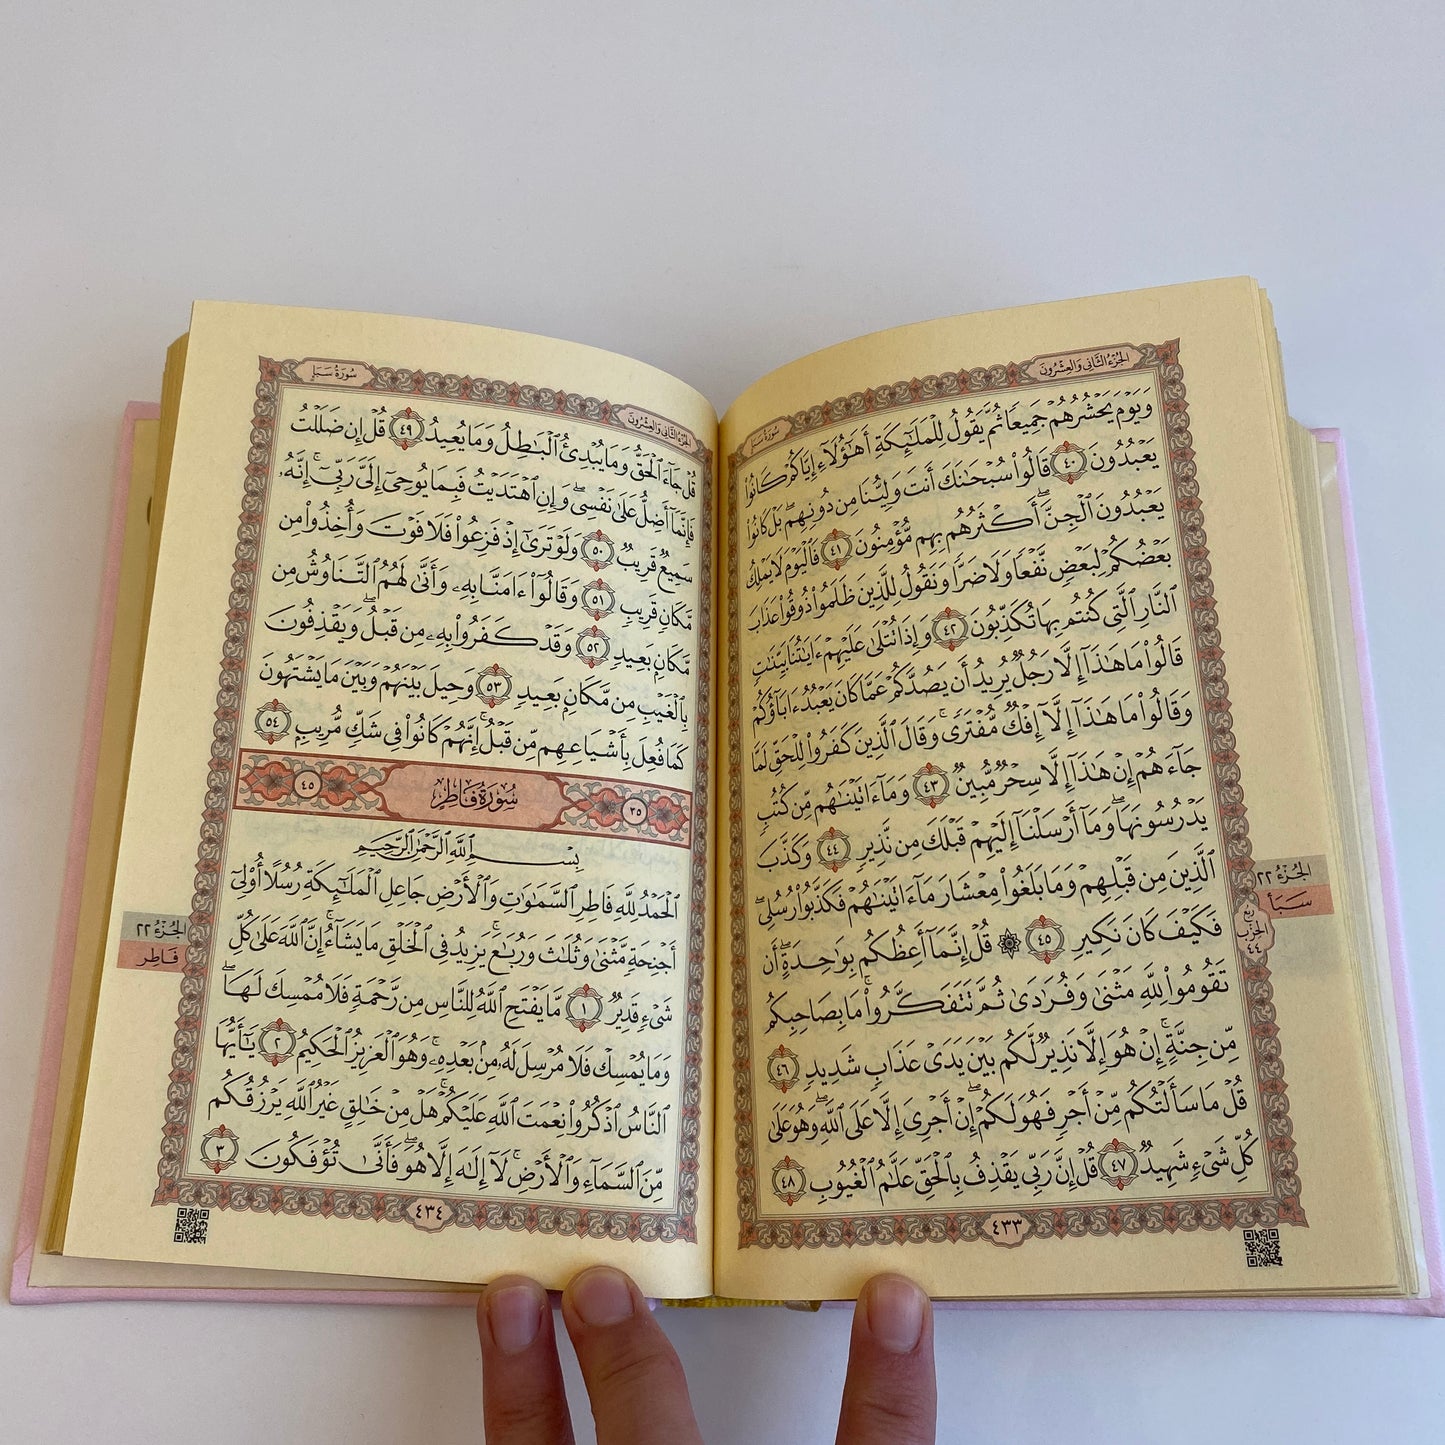 الجزء الثاني والعشرون
سورة سبإ
وَيَوۡمَ يَحۡشُرُهُمۡ جَمِيعٗا ثُمَّ يَقُولُ لِلۡمَلَٰٓئِكَةِ أَهَٰٓؤُلَآءِ إِيَّاكُمۡ كَانُواْ
يَعۡبُدُونَ ٤٠ قَالُواْ سُبۡحَٰنَكَ أَنتَ وَلِيُّنَا مِن دُونِهِمۖ بَلۡ كَانُواْ
يَعۡبُدُونَ ٱلۡجِنَّۖ أَكۡثَرُهُم بِهِم مُّؤۡمِنُونَ ٤١ فَٱلۡيَوۡمَ لَا يَمۡلِكُ
بَعۡضُكُمۡ لِبَعۡضٖ نَّفۡعٗا وَلَا ضَرّٗا وَنَقُولُ لِلَّذِينَ ظَلَمُواْ ذُوقُواْ عَذَابَ
ٱلنَّارِ ٱلَّتِي كُنتُم بِهَا تُكَذِّبُونَ ٤٢ وَإِذَا تُتۡلَىٰ عَلَيۡهِمۡ ءَايَٰتُنَا بَيِّنَٰتٖ
قَالُواْ مَا هَٰذَآ إِلَّا رَجُلٞ يُرِيدُ أَن يَصُدَّكُمۡ عَمَّا كَانَ يَعۡبُدُ ءَابَآؤُكُمۡ
وَقَالُواْ مَا هَٰذَآ إِلَّآ إِفۡكٞ مُّفۡتَرٗىۚ وَقَالَ ٱلَّذِينَ كَفَرُواْ لِلۡحَقِّ لَمَّا
جَآءَهُمۡ إِنۡ هَٰذَآ إِلَّا سِحۡرٞ مُّبِينٞ ٤٣ وَمَآ ءَاتَيۡنَٰهُم مِّن كُتُبٖ
يَدۡرُسُونَهَاۖ وَمَآ أَرۡسَلۡنَآ إِلَيۡهِمۡ قَبۡلَكَ مِن نَّذِيرٖ ٤٤ وَكَذَّبَ
ٱلَّذِينَ مِن قَبۡلِهِمۡ وَمَا بَلَغُواْ مِعۡشَارَ مَآ ءَاتَيۡنَٰهُمۡ فَكَذَّبُواْ رُسُلِيۖ
فَكَيۡفَ كَانَ نَكِيرِ ٤٥ ۞ قُلۡ إِنَّمَآ أَعِظُكُم بِوَٰحِدَةٍۖ أَن
تَقُومُواْ لِلَّهِ مَثۡنَىٰ وَفُرَٰدَىٰ ثُمَّ تَتَفَكَّرُواْۚ مَا بِصَاحِبِكُم
مِّن جِنَّةٍۚ إِنۡ هُوَ إِلَّا نَذِيرٞ لَّكُم بَيۡنَ يَدَيۡ عَذَابٖ شَدِيدٖ ٤٦
قُلۡ مَا سَأَلۡتُكُم مِّنۡ أَجۡرٖ فَهُوَ لَكُمۡۖ إِنۡ أَجۡرِيَ إِلَّا عَلَى ٱللَّهِۖ وَهُوَ عَلَىٰ
كُلِّ شَيۡءٖ شَهِيدٞ ٤٧ قُلۡ إِنَّ رَبِّي يَقۡذِفُ بِٱلۡحَقِّ عَلَّٰمُ ٱلۡغُيُوبِ ٤٨
الجزء ٢٢
سبأ
ربع
الحزب
٤٤
٤٣٣
الجزء الثاني والعشرون
سورة سبإ
قُلۡ جَآءَ ٱلۡحَقُّ وَمَا يُبۡدِئُ ٱلۡبَٰطِلُ وَمَا يُعِيدُ ٤٩ قُلۡ إِن ضَلَلۡتُ
فَإِنَّمَآ أَضِلُّ عَلَىٰ نَفۡسِيۖ وَإِنِ ٱهۡتَدَيۡتُ فَبِمَا يُوحِيٓ إِلَيَّ رَبِّيٓۚ إِنَّهُۥ
سَمِيعٞ قَرِيبٞ ٥٠ وَلَوۡ تَرَىٰٓ إِذۡ فَزِعُواْ فَلَا فَوۡتَ وَأُخِذُواْ مِن
مَّكَانٖ قَرِيبٖ ٥١ وَقَالُوٓاْ ءَامَنَّا بِهِۦ وَأَنَّىٰ لَهُمُ ٱلتَّنَاوُشُ مِن
مَّكَانِۭ بَعِيدٖ ٥٢ وَقَدۡ كَفَرُواْ بِهِۦ مِن قَبۡلُۖ وَيَقۡذِفُونَ
بِٱلۡغَيۡبِ مِن مَّكَانِۭ بَعِيدٖ ٥٣ وَحِيلَ بَيۡنَهُمۡ وَبَيۡنَ مَا يَشۡتَهُونَ
كَمَا فُعِلَ بِأَشۡيَاعِهِم مِّن قَبۡلُۚ إِنَّهُمۡ كَانُواْ فِي شَكّٖ مُّرِيبِۭ ٥٤
٣٥ سُورَةُ فَاطِرٍ ٤٥
بِسۡمِ ٱللَّهِ ٱلرَّحۡمَٰنِ ٱلرَّحِيمِ
ٱلۡحَمۡدُ لِلَّهِ فَاطِرِ ٱلسَّمَٰوَٰتِ وَٱلۡأَرۡضِ جَاعِلِ ٱلۡمَلَٰٓئِكَةِ رُسُلًا أُوْلِيٓ
أَجۡنِحَةٖ مَّثۡنَىٰ وَثُلَٰثَ وَرُبَٰعَۚ يَزِيدُ فِي ٱلۡخَلۡقِ مَا يَشَآءُۚ إِنَّ ٱللَّهَ عَلَىٰ كُلِّ
شَيۡءٖ قَدِيرٞ ١ مَّا يَفۡتَحِ ٱللَّهُ لِلنَّاسِ مِن رَّحۡمَةٖ فَلَا مُمۡسِكَ لَهَاۖ
وَمَا يُمۡسِكۡ فَلَا مُرۡسِلَ لَهُۥ مِنۢ بَعۡدِهِۦۚ وَهُوَ ٱلۡعَزِيزُ ٱلۡحَكِيمُ ٢ يَٰٓأَيُّهَا
ٱلنَّاسُ ٱذۡكُرُواْ نِعۡمَتَ ٱللَّهِ عَلَيۡكُمۡۚ هَلۡ مِنۡ خَٰلِقٍ غَيۡرُ ٱللَّهِ يَرۡزُقُكُم
مِّنَ ٱلسَّمَآءِ وَٱلۡأَرۡضِۚ لَآ إِلَٰهَ إِلَّا هُوَۖ فَأَنَّىٰ تُؤۡفَكُونَ ٣
الجزء ٢٢
فاطر
٤٣٤